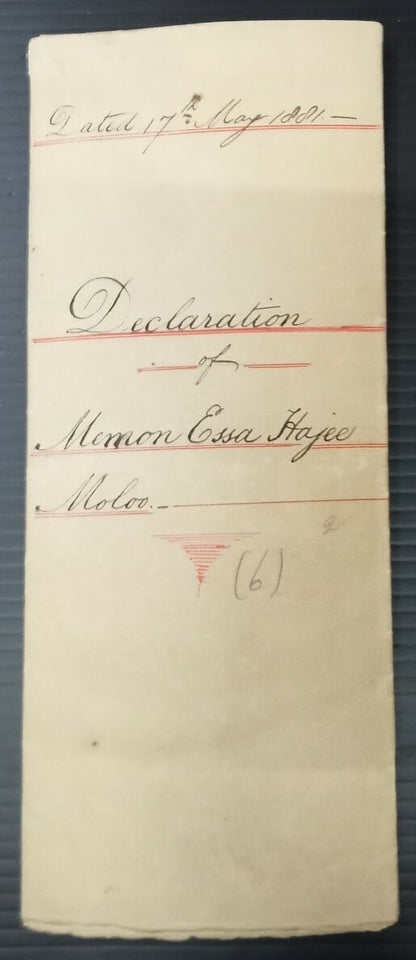 Dated 17th May 1881.—
Declaration
of
Memon Essa Hajee
Moloo.—
2
(6)